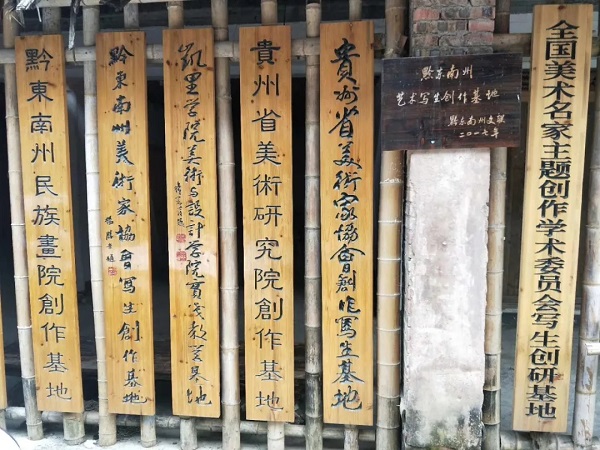 黔東南州民族畫院創作基地
黔東南州美術家協會寫生創作基地
凱里学院美術与設計学院實践教學基地
貴州省美術研究院創作基地
貴州省美術家協會創作寫生基地
黔东南州
艺术写生创作基地
黔东南州文联
二〇一七年
全国美术名家主题创作学术委员会写生创研基地